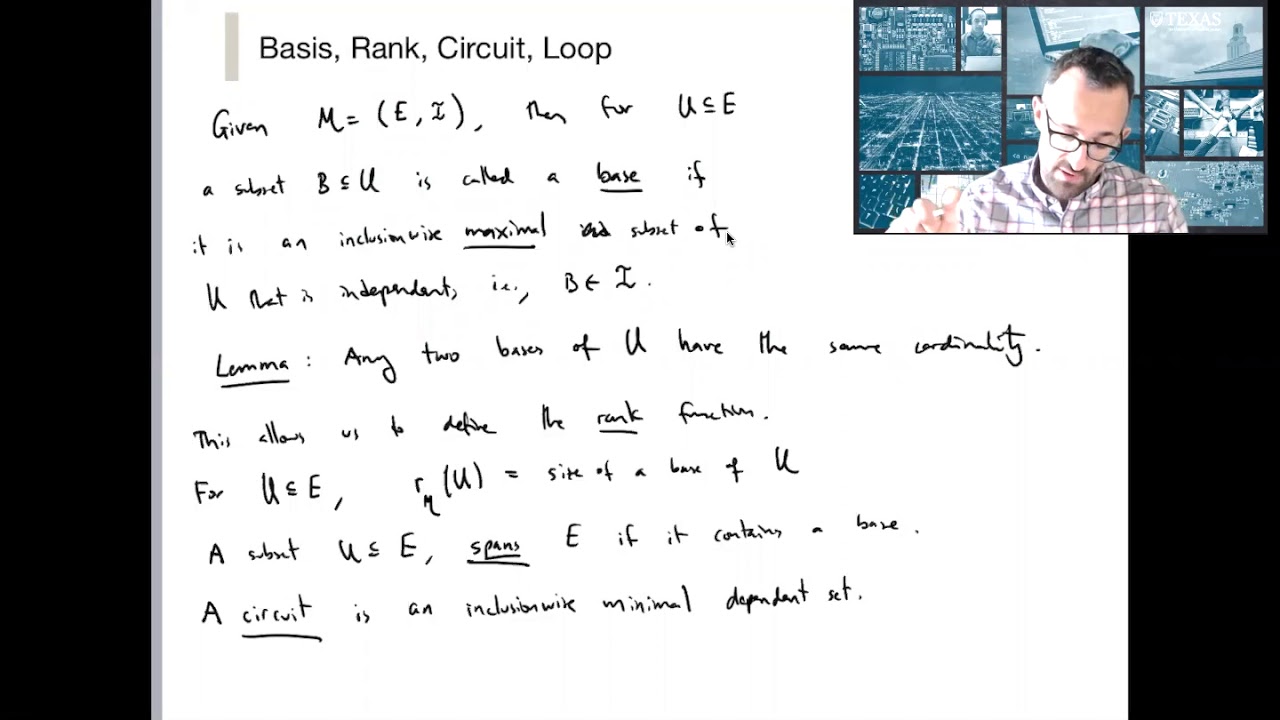 Basis, Rank, Circuit, Loop
TEXAS
Given M = (E, I), then for U ⊆ E
a subset B ⊆ U is called a base if
it is an inclusionwise maximal subset of
U that is independent, i.e., B ∈ I.
Lemma: Any two bases of U have the same cardinality.
This allows us to define the rank function.
For U ⊆ E, r_M(U) = size of a base of U
A subset U ⊆ E, spans E if it contains a base.
A circuit is an inclusionwise minimal dependent set.